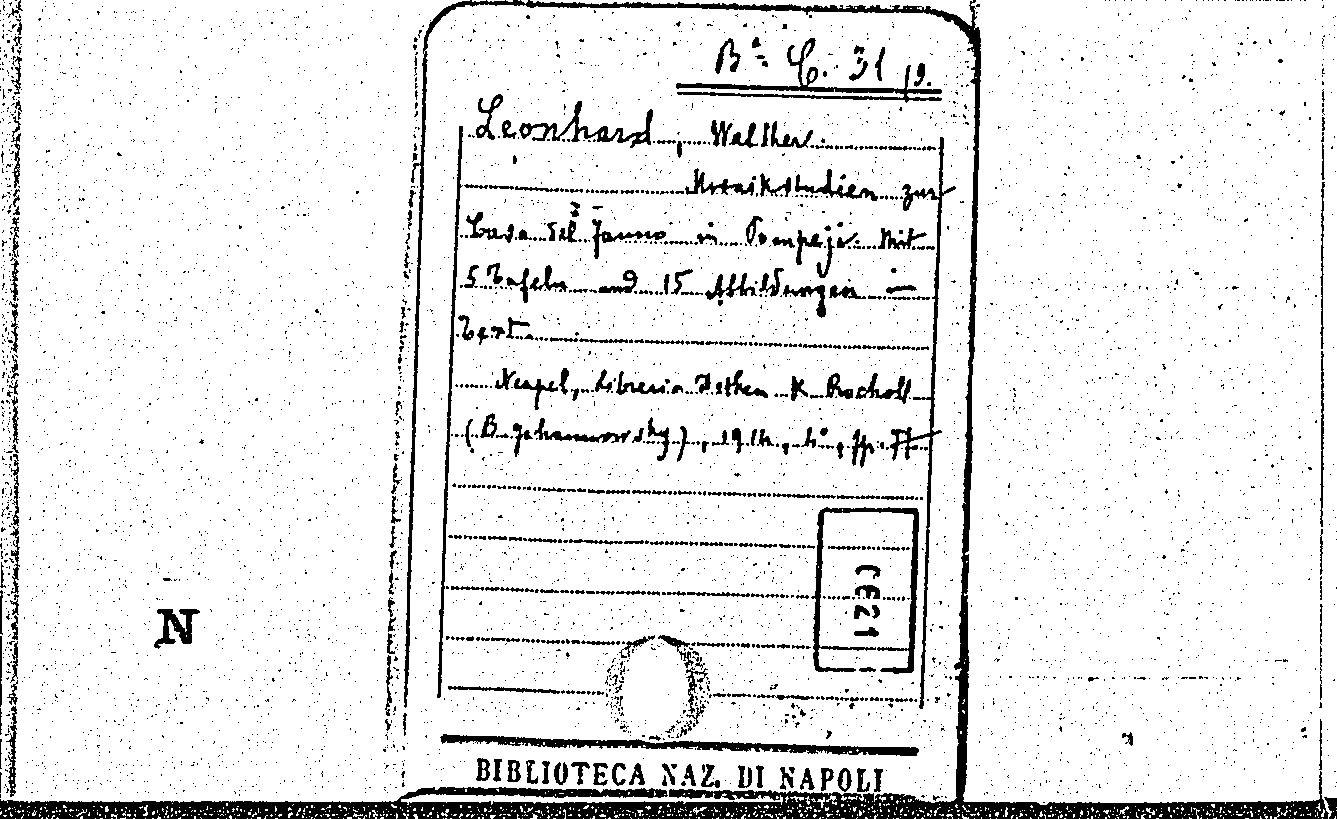 Bª C. 31 19.
Leonhard, Walther.
Mosaikstudien zur
Casa del Fauno in Pompeji. Mit
5 Tafeln und 15 Abbildungen im
Text.
Neapel, Libreria Detken & Rocholl
(B. Johannowsky), 1914, 4°, pp. 77
C621
N
BIBLIOTECA NAZ. DI NAPOLI